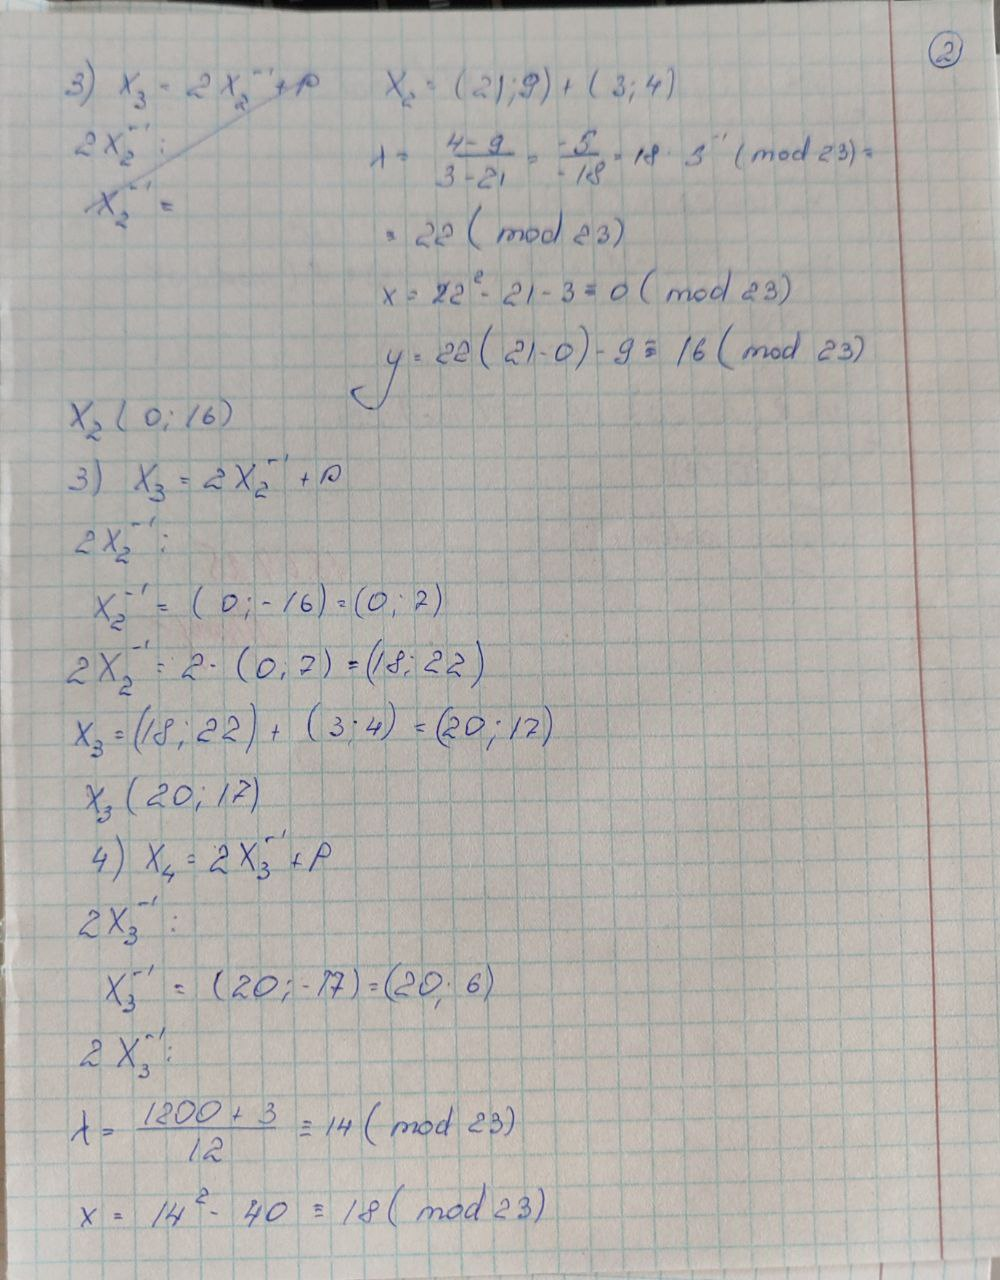 2
3) X₃ = 2X₂⁻¹ + P
2X₂⁻¹:
X₂⁻¹ =
X₂ = (21; 9) + (3; 4)
λ = (4-9)/(3-21) = (-5)/(-18) = 18 · 5⁻¹ (mod 23) =
= 22 (mod 23)
x = 22² - 21 - 3 ≡ 0 (mod 23)
y = 22(21-0) - 9 ≡ 16 (mod 23)
X₂(0; 16)
3) X₃ = 2X₂⁻¹ + P
2X₂⁻¹:
X₂⁻¹ = (0; -16) = (0; 7)
2X₂⁻¹ = 2 · (0; 7) = (18; 22)
X₃ = (18; 22) + (3; 4) = (20; 17)
X₃(20; 17)
4) X₄ = 2X₃⁻¹ + P
2X₃⁻¹:
X₃⁻¹ = (20; -17) = (20; 6)
2X₃⁻¹:
λ = (1200 + 3)/12 ≡ 14 (mod 23)
x = 14² - 40 ≡ 18 (mod 23)